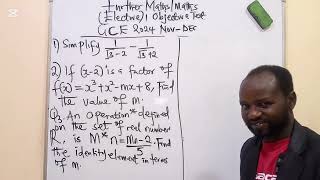 Further Maths/Maths
(Elective) Objective Test
GCE 2024 Nov-Dec
1) Simplify 1/(√3-2) - 1/(√3+2)
2) If (x-2) is a factor of
f(x) = x³+x²-mx+8, Find
the value of m.
Q3. An Operation * defined
on the set of real number
R, is M*n = (Mn-2)/5. Find
the identity element in terms
of m.